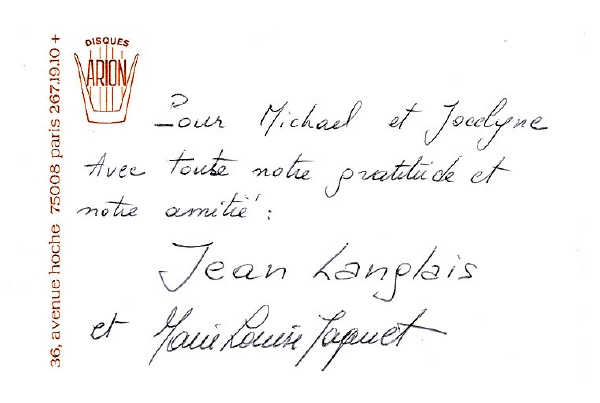 DISQUES
ARION
36, avenue hoche 75008 paris 267.19.10 +
Pour Michael et Jocelyne
Avec toute notre gratitude et
notre amitié :
Jean Langlais
et Marie Louise Jaquet